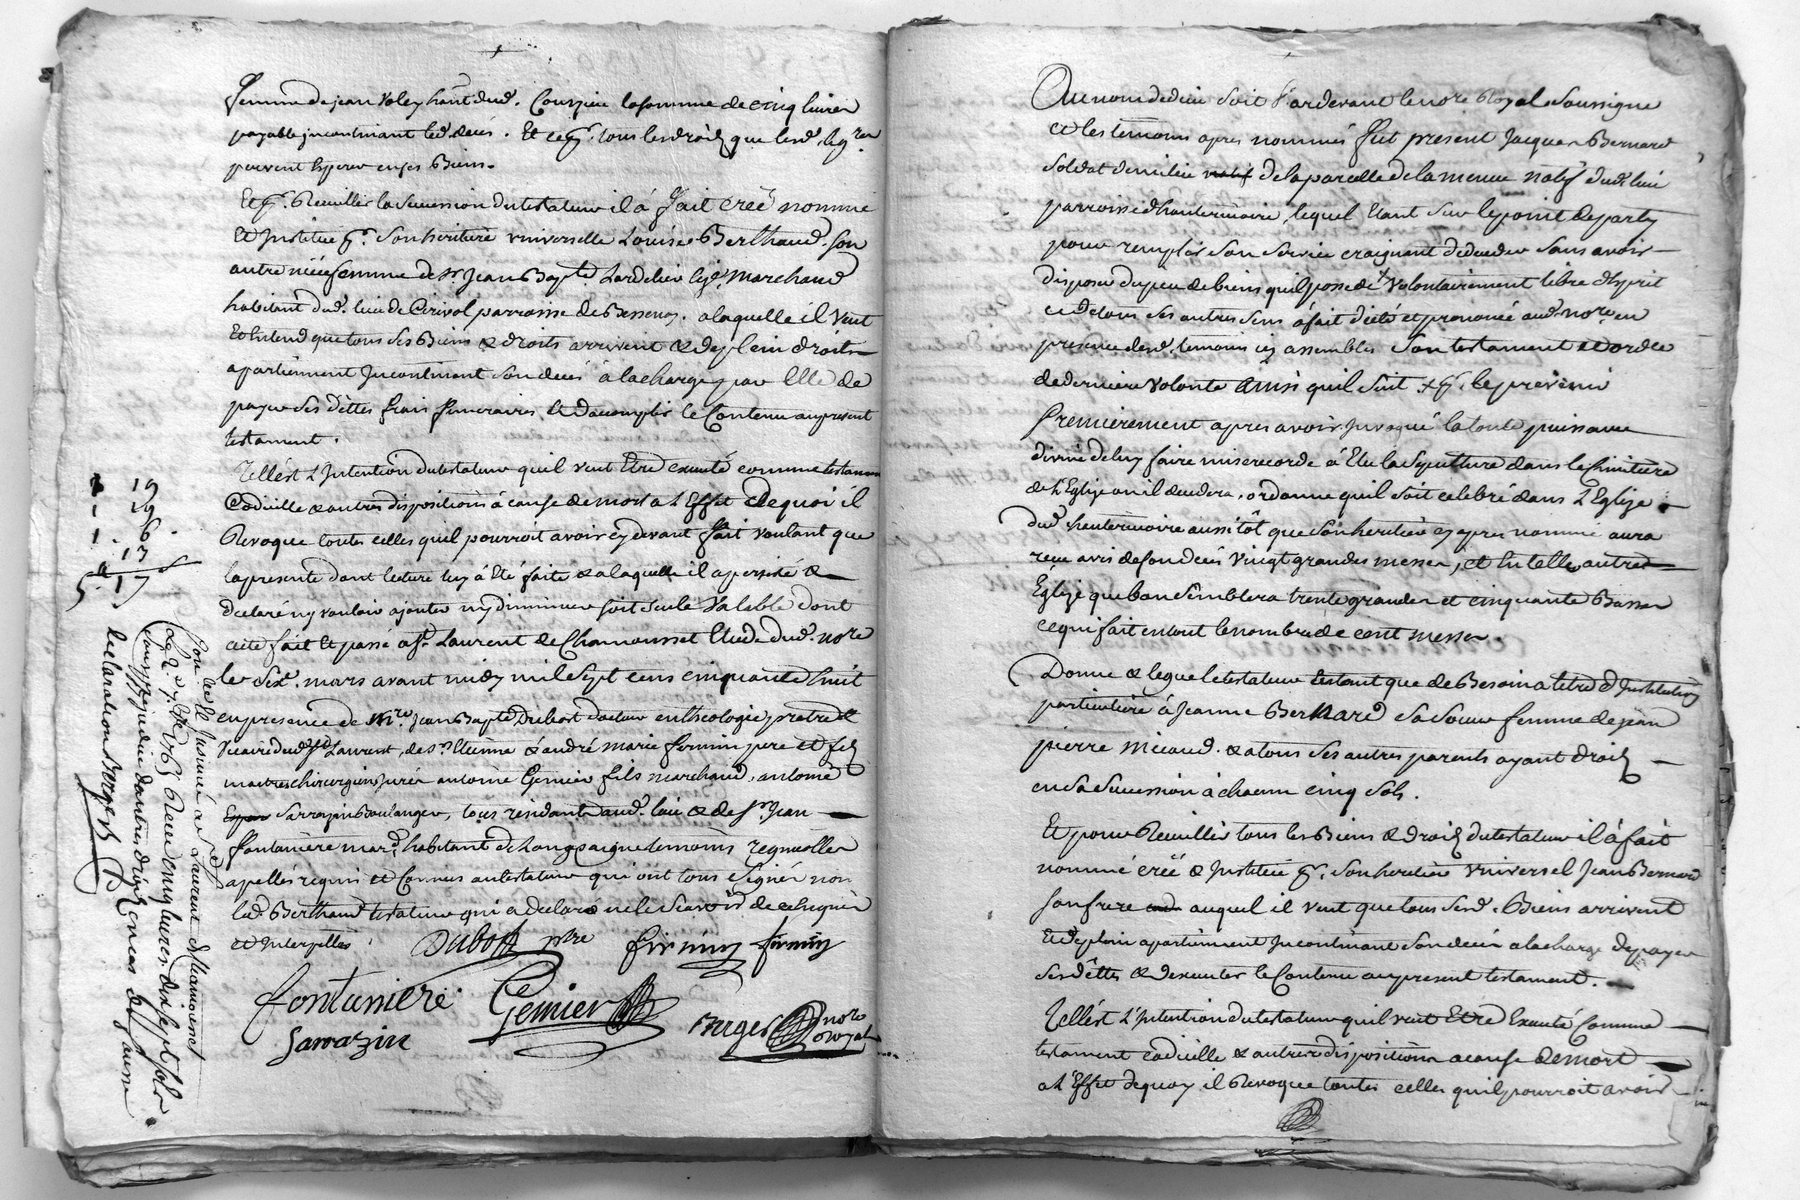 femme de jean Voley hant dud. Courzieu la somme de cinq livres
payable jncontinant led. deces. Et ce p. tous les droits que lesd. leg.res
peuvent Esperer en ses Biens.
Et p. Recuillir la succession du testateur il à fait créé nommé
Et jnstitue p. son heritiere vniverselle Louise Berthaud son
autre niéce femme de Sr. Jean Bapte. Lardelier marchand
habitant dud. lieu de parroisse de Bessenay. a laquelle il veut
Et Entend que tous ses Biens & droits arrivent & de plein droits
apartiennent jncontinant son deces a la charge par Elle de
payer ses déttes frais funeraires Et d'accomplir le Contenu au present
testament.
Tell'ést L'jntention du testateur qu'il veut Etre executé comme testament
Codicille & autres dispositions à cause de mort a L'Effet de quoi il
Revoque toutes celles quil pourroit avoir cy devant fait voulant que
la presente dont lecture luy à Eté faite & a laquelle il a persisté &
declaré ny vouloir ajouter ny diminuer soit seule valable dont
acte fait Et passé a St. Laurent de Chamousset Etude dud. nore
le Six. mars avant midy mil sept cens cinquante huit
en presence de Mre. Jean Bapte Dubost docteur en theologie pretre &
vicaire dud. St Laurent, de Srs. Etienne & andré marie firmin pere et fils
maitres chirurgiens jurés antoine Gemier fils marchand, antoine
Sarrazin Boulanger, tous residants aud. lieu & de Sr. Jean
fontaniere mard. habitant de Longesaigne temoins
apellés requis et Connus au testateur qui ont tous signés non
led. Berthaud testateur qui a declaré ne le Scavoir de ce Enquis
et Interpellé.
Dubost ptre firmin firmin
fontaniere Gemier
Sarrazin Berger nore royal
19
19
6
13
5 17
Con. lle & jnsinué a St Laurent de Chamousset
Le 2. 7bre 1765 Receu cinq livres dix sept sols
sauf a d'autres droits en cas de fausse
declaration Berger
Au nom de dieu soit Pardevant le nore Royal Soussigné
et les temoins apres nommés fut present Jacques Bernard
soldat de milice natif de la parcelle de la menue natif dud. lieu
parroisse d'hauterivoire, lequel Etant sur le point de partir
pour remplir son service craignant de deceder sans avoir
disposer du peu de biens quil possede Volontairement libre d'Esprit
et de tous ses autres sens à fait dicté et prononcé aud. nore, en
presence desd. temoins icy assemblés son testament et ordre
de derniere volonté ainsi quil suit
Premierement apres avoir jnvoqué la toute puissance
divine de luy faire misericorde à Elu la Sepulture dans le Cimitiere
de L'Eglise ou il decedera, ordonne quil soit celebré dans L'Eglise
dud. hauterivoire aussitôt que son heritier cy apres nommé aura
reçu avis de son deces vingt grandes messes, et En telle autre
Eglise que bon semblera trente grandes et cinquante Basses
ce qui fait en tout le nombre de cent messes.
Donne & legue le testateur testant que de Besoin a titre d'Institution
particuliere à Jeanne Bernard sa soeur femme de jean
pierre Micaud. & a tous ses autres parents ayant droits
en sa succession à chacun cinq sols.
Et pour Recuillir tous les Biens & droits du testateur il à fait
nommé créé & jnstitué p. son heritier vniversel Jean Bernard
son frere auquel il veut que tous sesd. Biens arrivent
Et de plein apartiennent jncontinant son deces a la charge de payer
ses déttes & d'executer le Contenu au present testament.
Tell'ést L'jntention du testateur quil veut Etre Executé Comme
testament codicille & autres dispositions a cause de mort
a L'Effet de quoy il Revoque toutes celles quil pourroit avoir